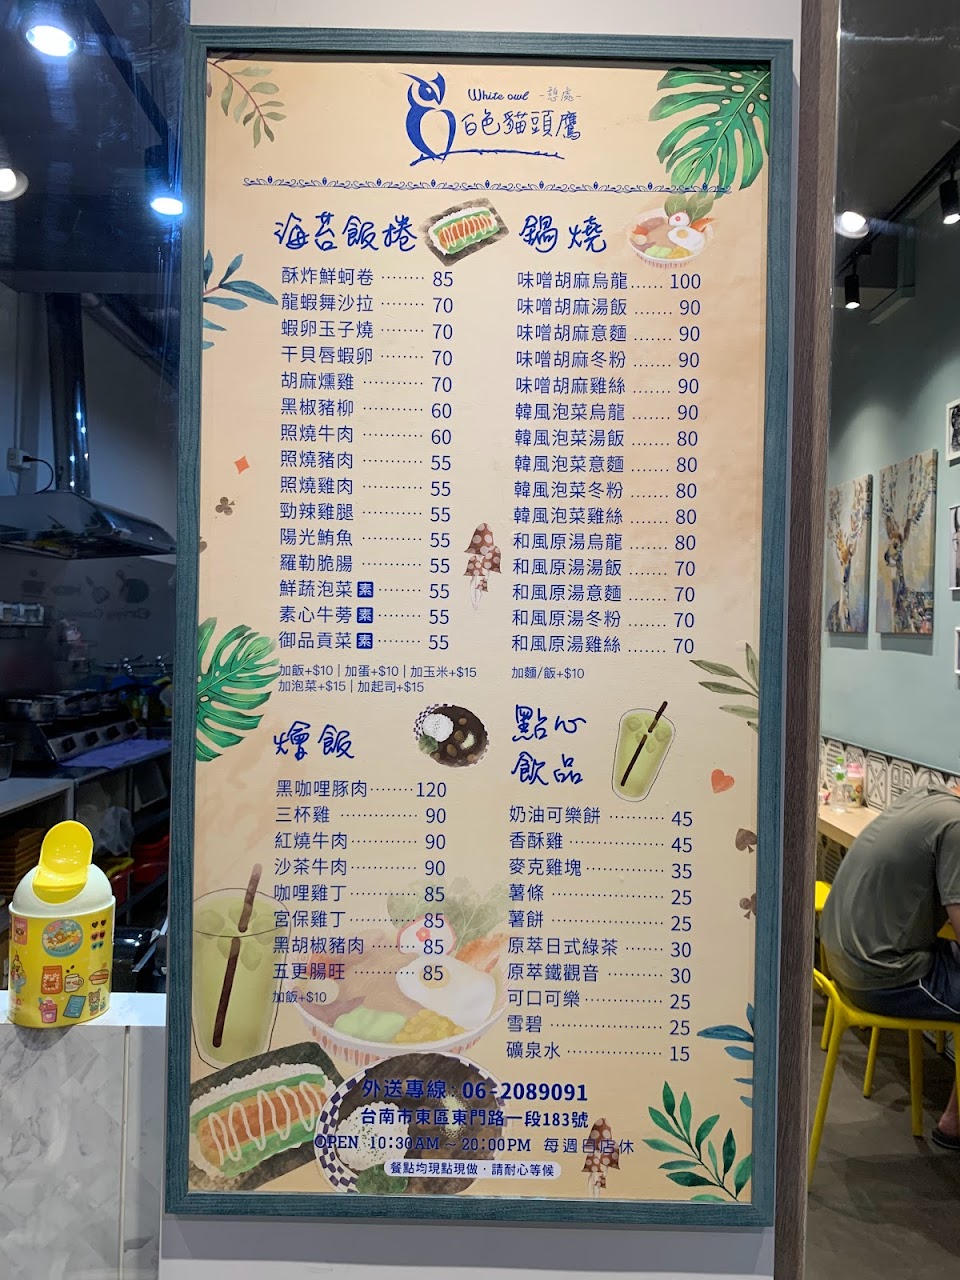 White owl -憩處-
白色貓頭鷹
海苔飯捲
酥炸鮮蚵卷 ········ 85
龍蝦舞沙拉 ········ 70
蝦卵玉子燒 ········ 70
干貝唇蝦卵 ········ 70
胡麻燻雞 ··········· 70
黑椒豬柳 ··········· 60
照燒牛肉 ··········· 60
照燒豬肉 ··········· 55
照燒雞肉 ··········· 55
勁辣雞腿 ··········· 55
陽光鮪魚 ··········· 55
羅勒脆腸 ··········· 55
鮮蔬泡菜 素 ········ 55
素心牛蒡 素 ········ 55
御品貢菜 素 ········ 55
加飯+$10 | 加蛋+$10 | 加玉米+$15
加泡菜+$15 | 加起司+$15
鍋燒
味噌胡麻烏龍...... 100
味噌胡麻湯飯 ....... 90
味噌胡麻意麵 ....... 90
味噌胡麻冬粉 ....... 90
味噌胡麻雞絲 ....... 90
韓風泡菜烏龍 ....... 90
韓風泡菜湯飯 ....... 80
韓風泡菜意麵 ....... 80
韓風泡菜冬粉 ....... 80
韓風泡菜雞絲 ....... 80
和風原湯烏龍 ....... 80
和風原湯湯飯 ....... 70
和風原湯意麵 ....... 70
和風原湯冬粉 ....... 70
和風原湯雞絲 ....... 70
加麵/飯+$10
燴飯
黑咖哩豚肉········ 120
三杯雞 ·············· 90
紅燒牛肉············ 90
沙茶牛肉············ 90
咖哩雞丁············ 85
宮保雞丁············ 85
黑胡椒豬肉 ········ 85
五更腸旺 ··········· 85
加飯+$10
點心
飲品
奶油可樂餅 ·········· 45
香酥雞 ················ 45
麥克雞塊·············· 35
薯條 ··················· 25
薯餅 ··················· 25
原萃日式綠茶 ······· 30
原萃鐵觀音 ·········· 30
可口可樂 ············· 25
雪碧 ··················· 25
礦泉水 ················ 15
外送專線：06-2089091
台南市東區東門路一段183號
OPEN 10:30AM ~ 20:00PM 每週日店休
餐點均現點現做·請耐心等候